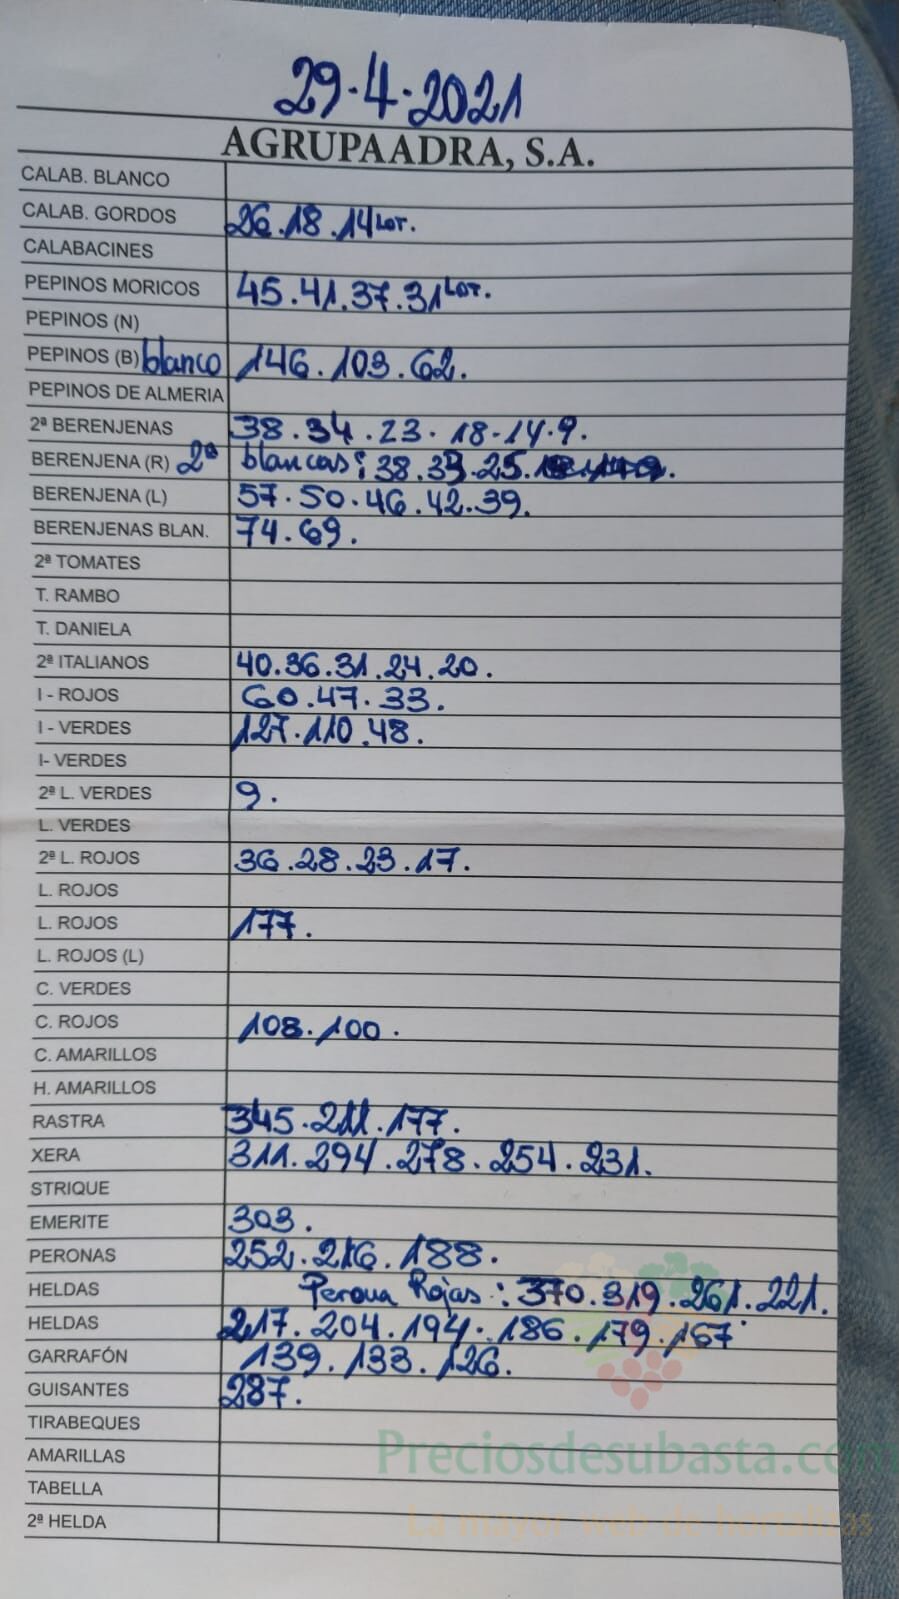 29.4.2021
AGRUPAADRA, S.A.
CALAB. BLANCO
CALAB. GORDOS 26.18.14 LOT.
CALABACINES
PEPINOS MORICOS 45.41.37.31 LOT.
PEPINOS (N)
PEPINOS (B) blanco 146.103.62.
PEPINOS DE ALMERIA
2ª BERENJENAS 38.34.23.18.14.9.
BERENJENA (R) 2ª blancas: 38.33.25.
BERENJENA (L) 57.50.46.42.39.
BERENJENAS BLAN. 74.69.
2ª TOMATES
T. RAMBO
T. DANIELA
2ª ITALIANOS 40.36.31.24.20.
I - ROJOS 60.47.33.
I - VERDES 127.110.48.
I- VERDES
2ª L. VERDES 9.
L. VERDES
2ª L. ROJOS 36.28.23.17.
L. ROJOS
L. ROJOS 177.
L. ROJOS (L)
C. VERDES
C. ROJOS 108.100.
C. AMARILLOS
H. AMARILLOS
RASTRA 345.211.177.
XERA 311.294.278.254.231.
STRIQUE
EMERITE 303.
PERONAS 252.216.188.
HELDAS Perona Rojas: 370.319.261.221.
HELDAS 217.204.194.186.179.167
GARRAFÓN 139.133.126.
GUISANTES 287.
TIRABEQUES
AMARILLAS
Preciosdesubasta.com
TABELLA
2ª HELDA
La mayor web de hortalizas